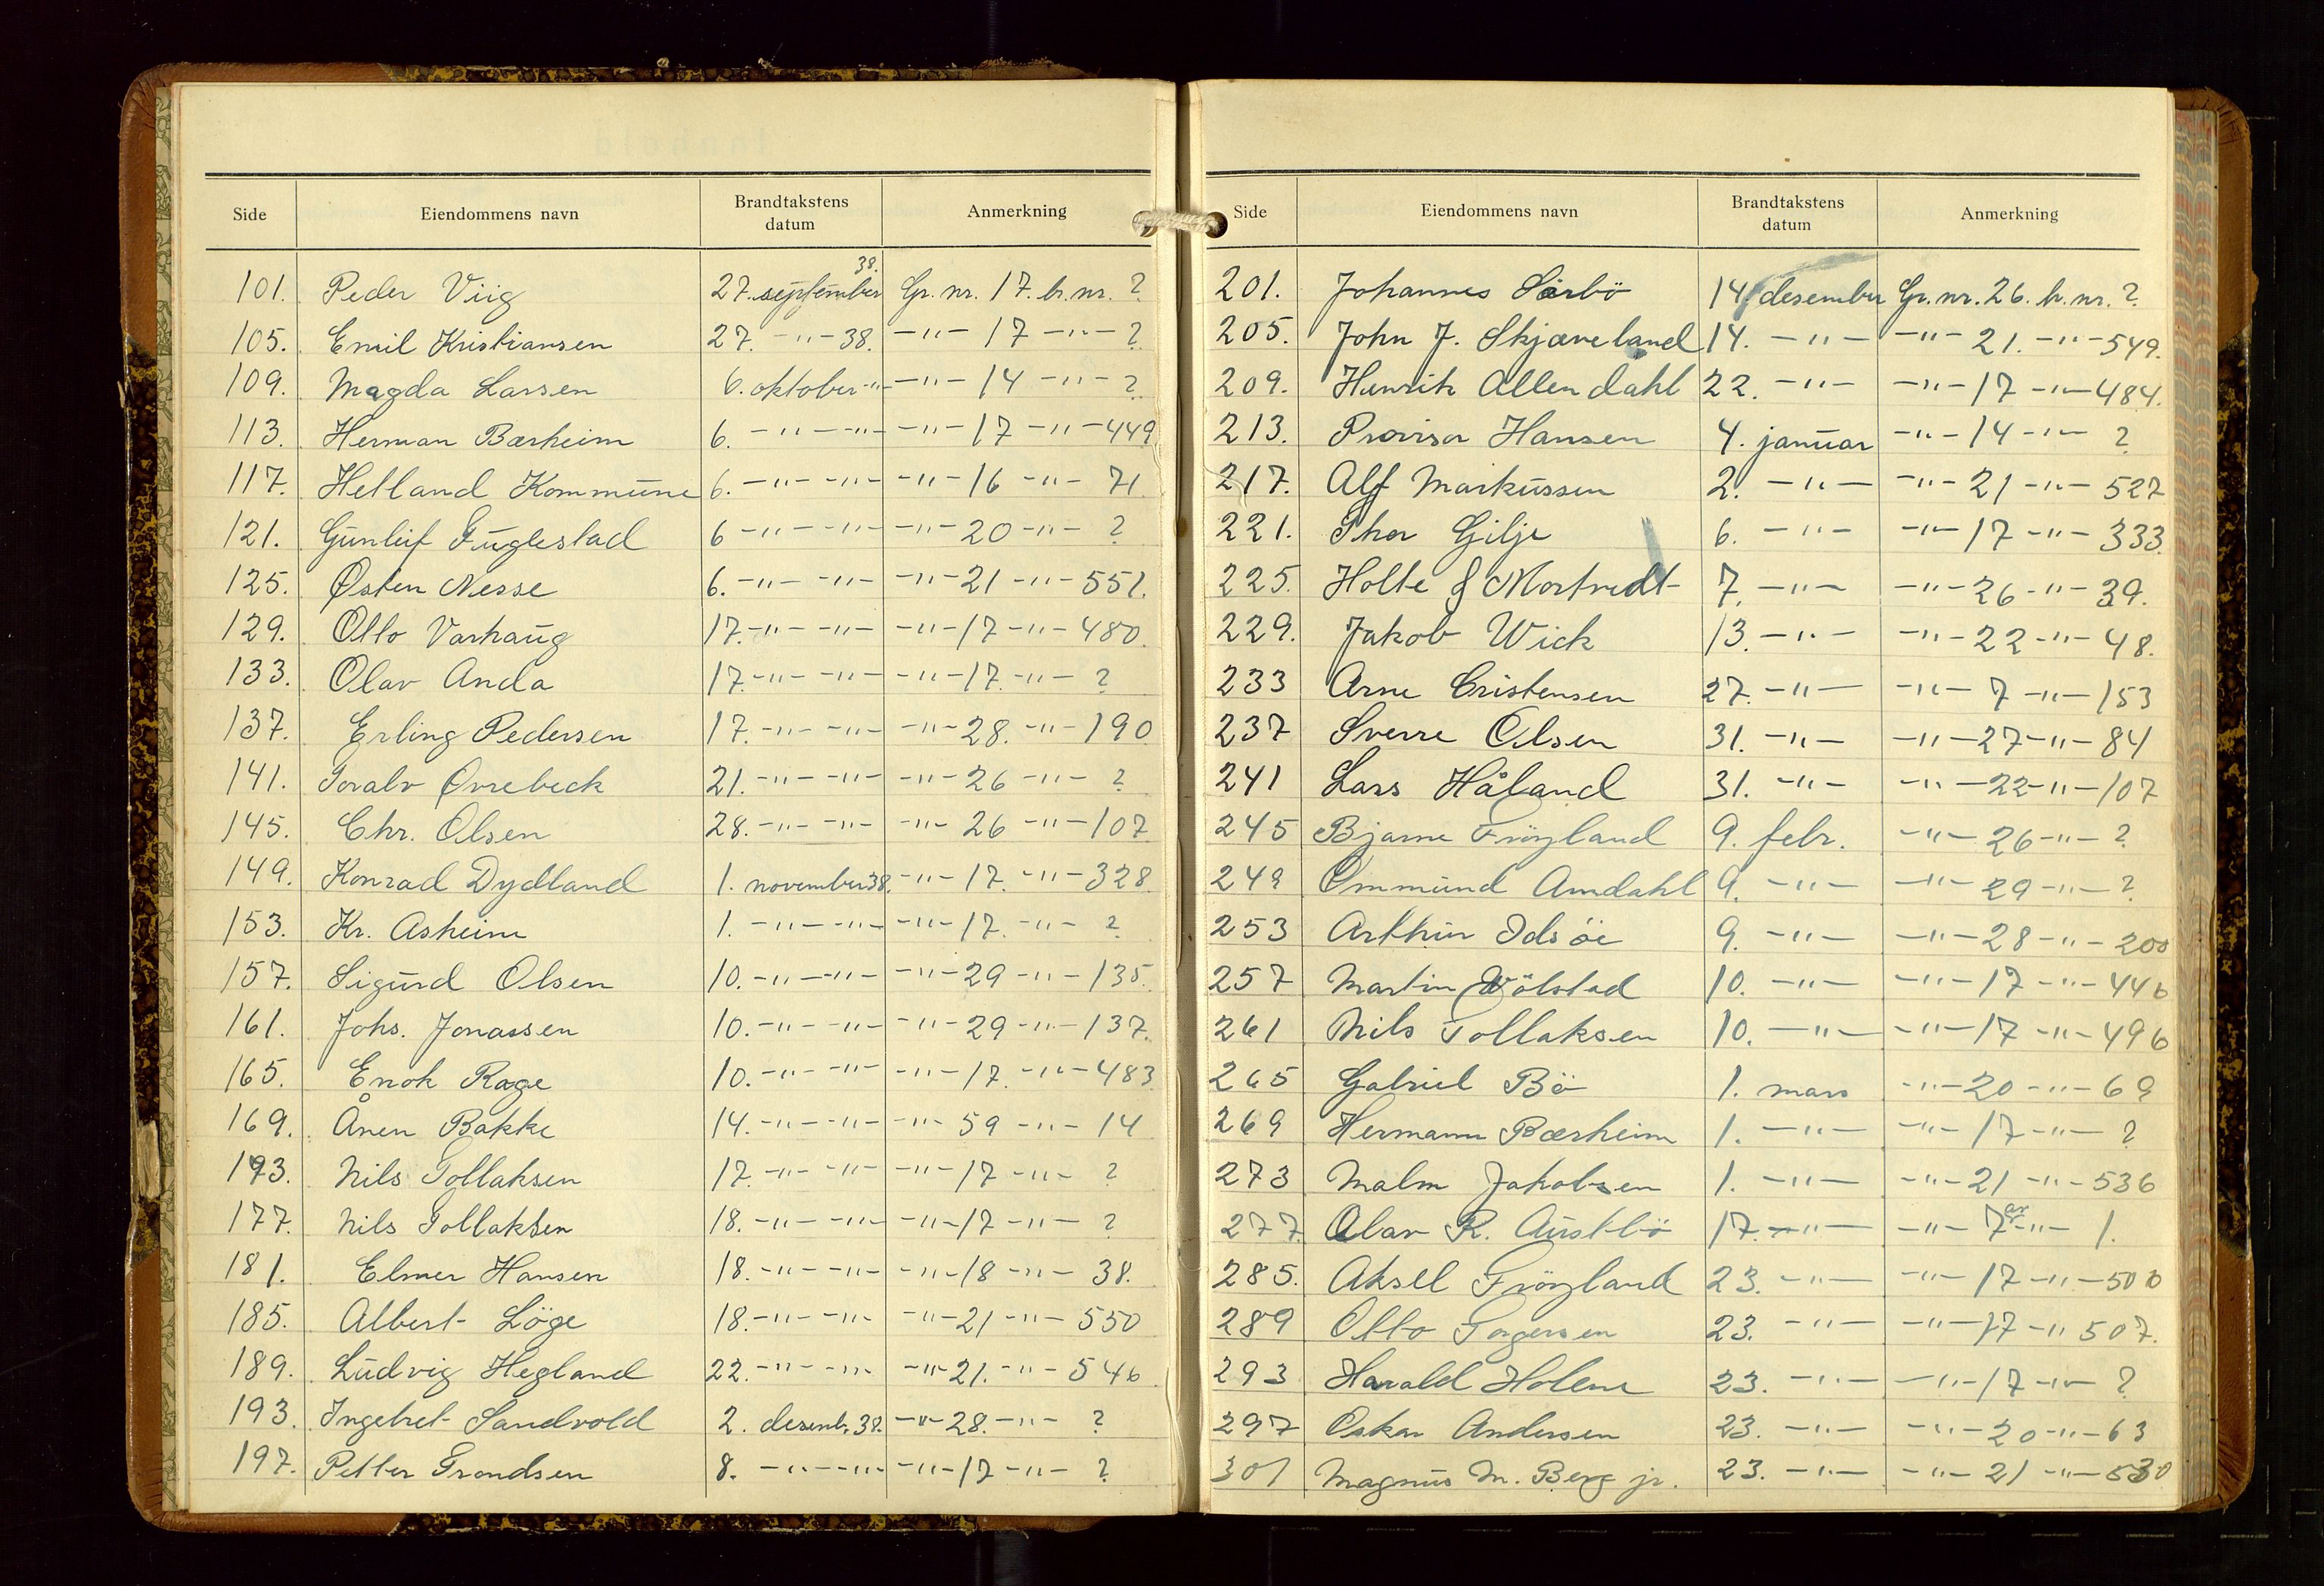 Side Eiendommens navn Brandtakstens datum Anmerkning
101. Peder Viig 27. september 38. Gr. nr. 17. br. nr. ?
105. Emil Kristiansen 27. -"- 38. -"- 17 -"- ?
109. Magda Larsen 6. oktober -"- -"- 14 -"- ?
113. Herman Bærheim 6. -"- -"- -"- 17 -"- 449
117. Hetland Kommune 6. -"- -"- -"- 16 -"- 71
121. Gunleif Fuglestad 6 -"- -"- -"- 20 -"- ?
125. Østen Nesse 6. -"- -"- -"- 21 -"- 551.
129. Otto Varhaug 17. -"- -"- -"- 17 -"- 480.
133. Olav Anda 17. -"- -"- -"- 17. -"- ?
137. Erling Pedersen 17. -"- -"- -"- 28. -"- 190
141. Toralv Ovrebeck 21. -"- -"- -"- 26 -"- ?
145. Chr. Olsen 28. -"- -"- -"- 26 -"- 107
149. Konrad Dydland 1. november 38. -"- 17. -"- 328.
153. Kr. Asheim 1. -"- -"- -"- 17. -"- ?
157. Sigurd Olsen 10. -"- -"- -"- 29 -"- 135.
161. Johs. Jonassen 10. -"- -"- -"- 29 -"- 137.
165. Enok Rage 10. -"- -"- -"- 17. -"- 483
169. Ånen Bakke 14. -"- -"- -"- 59 -"- 14
173. Nils Tollaksen 17. -"- -"- -"- 17 -"- ?
177. Nils Tollaksen 18. -"- -"- -"- 17 -"- ?
181. Elmer Hansen 18. -"- -"- -"- 18 -"- 38.
185. Albert Löge 18. -"- -"- -"- 21 -"- 550
189. Ludvig Hegland 22. -"- -"- -"- 21. -"- 546
193. Ingebret Sandvold 2. desemb. 38. -"- 28. -"- ?
197. Petter Trondsen 8. -"- -"- -"- 17 -"- ?
Side Eiendommens navn Brandtakstens datum Anmerkning
201. Johannes Sørbö 14. desember Gr. nr. 26. br. nr. ?
205. John J. Skjæveland 14. -"- -"- 21. -"- 549.
209. Henrik Allendahl 22. -"- -"- 17 -"- 484.
213. Provisor Hansen 4. januar -"- 14 -"- ?
217. Alf Markussen 2. -"- -"- 21 -"- 527
221. Thor Gilje 6. -"- -"- 17 -"- 333.
225. Holte & Mortvedt 7. -"- -"- 26 -"- 39.
229. Jakob Wick 13. -"- -"- 22 -"- 48.
233 Arne Cristensen 27. -"- -"- 7 -"- 153
237 Sverre Olsen 31. -"- -"- 27 -"- 84
241 Lars Håland 31. -"- -"- 22 -"- 107
245 Bjarne Fröyland 9. febr. -"- 26 -"- ?
249 Ommund Amdahl 9. -"- -"- 29 -"- ?
253 Arthur Idsöe 9. -"- -"- 28 -"- 200
257 Martin Wölstad 10. -"- -"- 17 -"- 446
261 Nils Tollaksen 10. -"- -"- 17 -"- 496
265 Gabriel Bö 1. mars -"- 20 -"- 69
269 Hermann Bærheim 1. -"- -"- 17 -"- ?
273 Malm Jakobsen 1. -"- -"- 21 -"- 536
277. Olav R. Austbö 17. -"- -"- 7 av -"- 1.
285. Aksel Fröyland 23. -"- -"- 17 -"- 506
289 Otto Torgersen 23. -"- -"- 17 -"- 507.
293 Harald Holene 23. -"- -"- 17 -"- ?
297 Oskar Andersen 23. -"- -"- 20 -"- 63
301 Magnus M. Berg jr. 23. -"- -"- 21 -"- 530